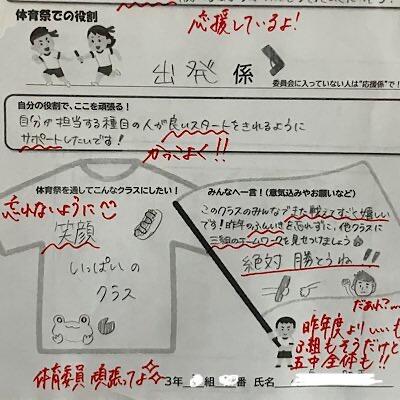 応援しているよ!
体育祭での役割
出発 係
委員会に入っていない人は"応援係"で!
自分の役割で、ここを頑張る!
自分が担当する種目の人が良いスタートをきれるように
サポートしたいです!
かっこよく!!
体育祭を通してこんなクラスにしたい!
忘れないように
笑顔
いっぱいの
クラス
体育委員 頑張ってよ
みんなへ一言!(意気込みやお願いなど)
このクラスのみんなでまた戦えてすごく嬉しい
です!昨年のふんいきを忘れずに、他クラスに
三組のホームワークを見せつけましょう
絶対 勝とうね!!
だあれ?
昨年度よりいいも
3組もそうだけど
五中全体も!!
3年 組 番 氏名